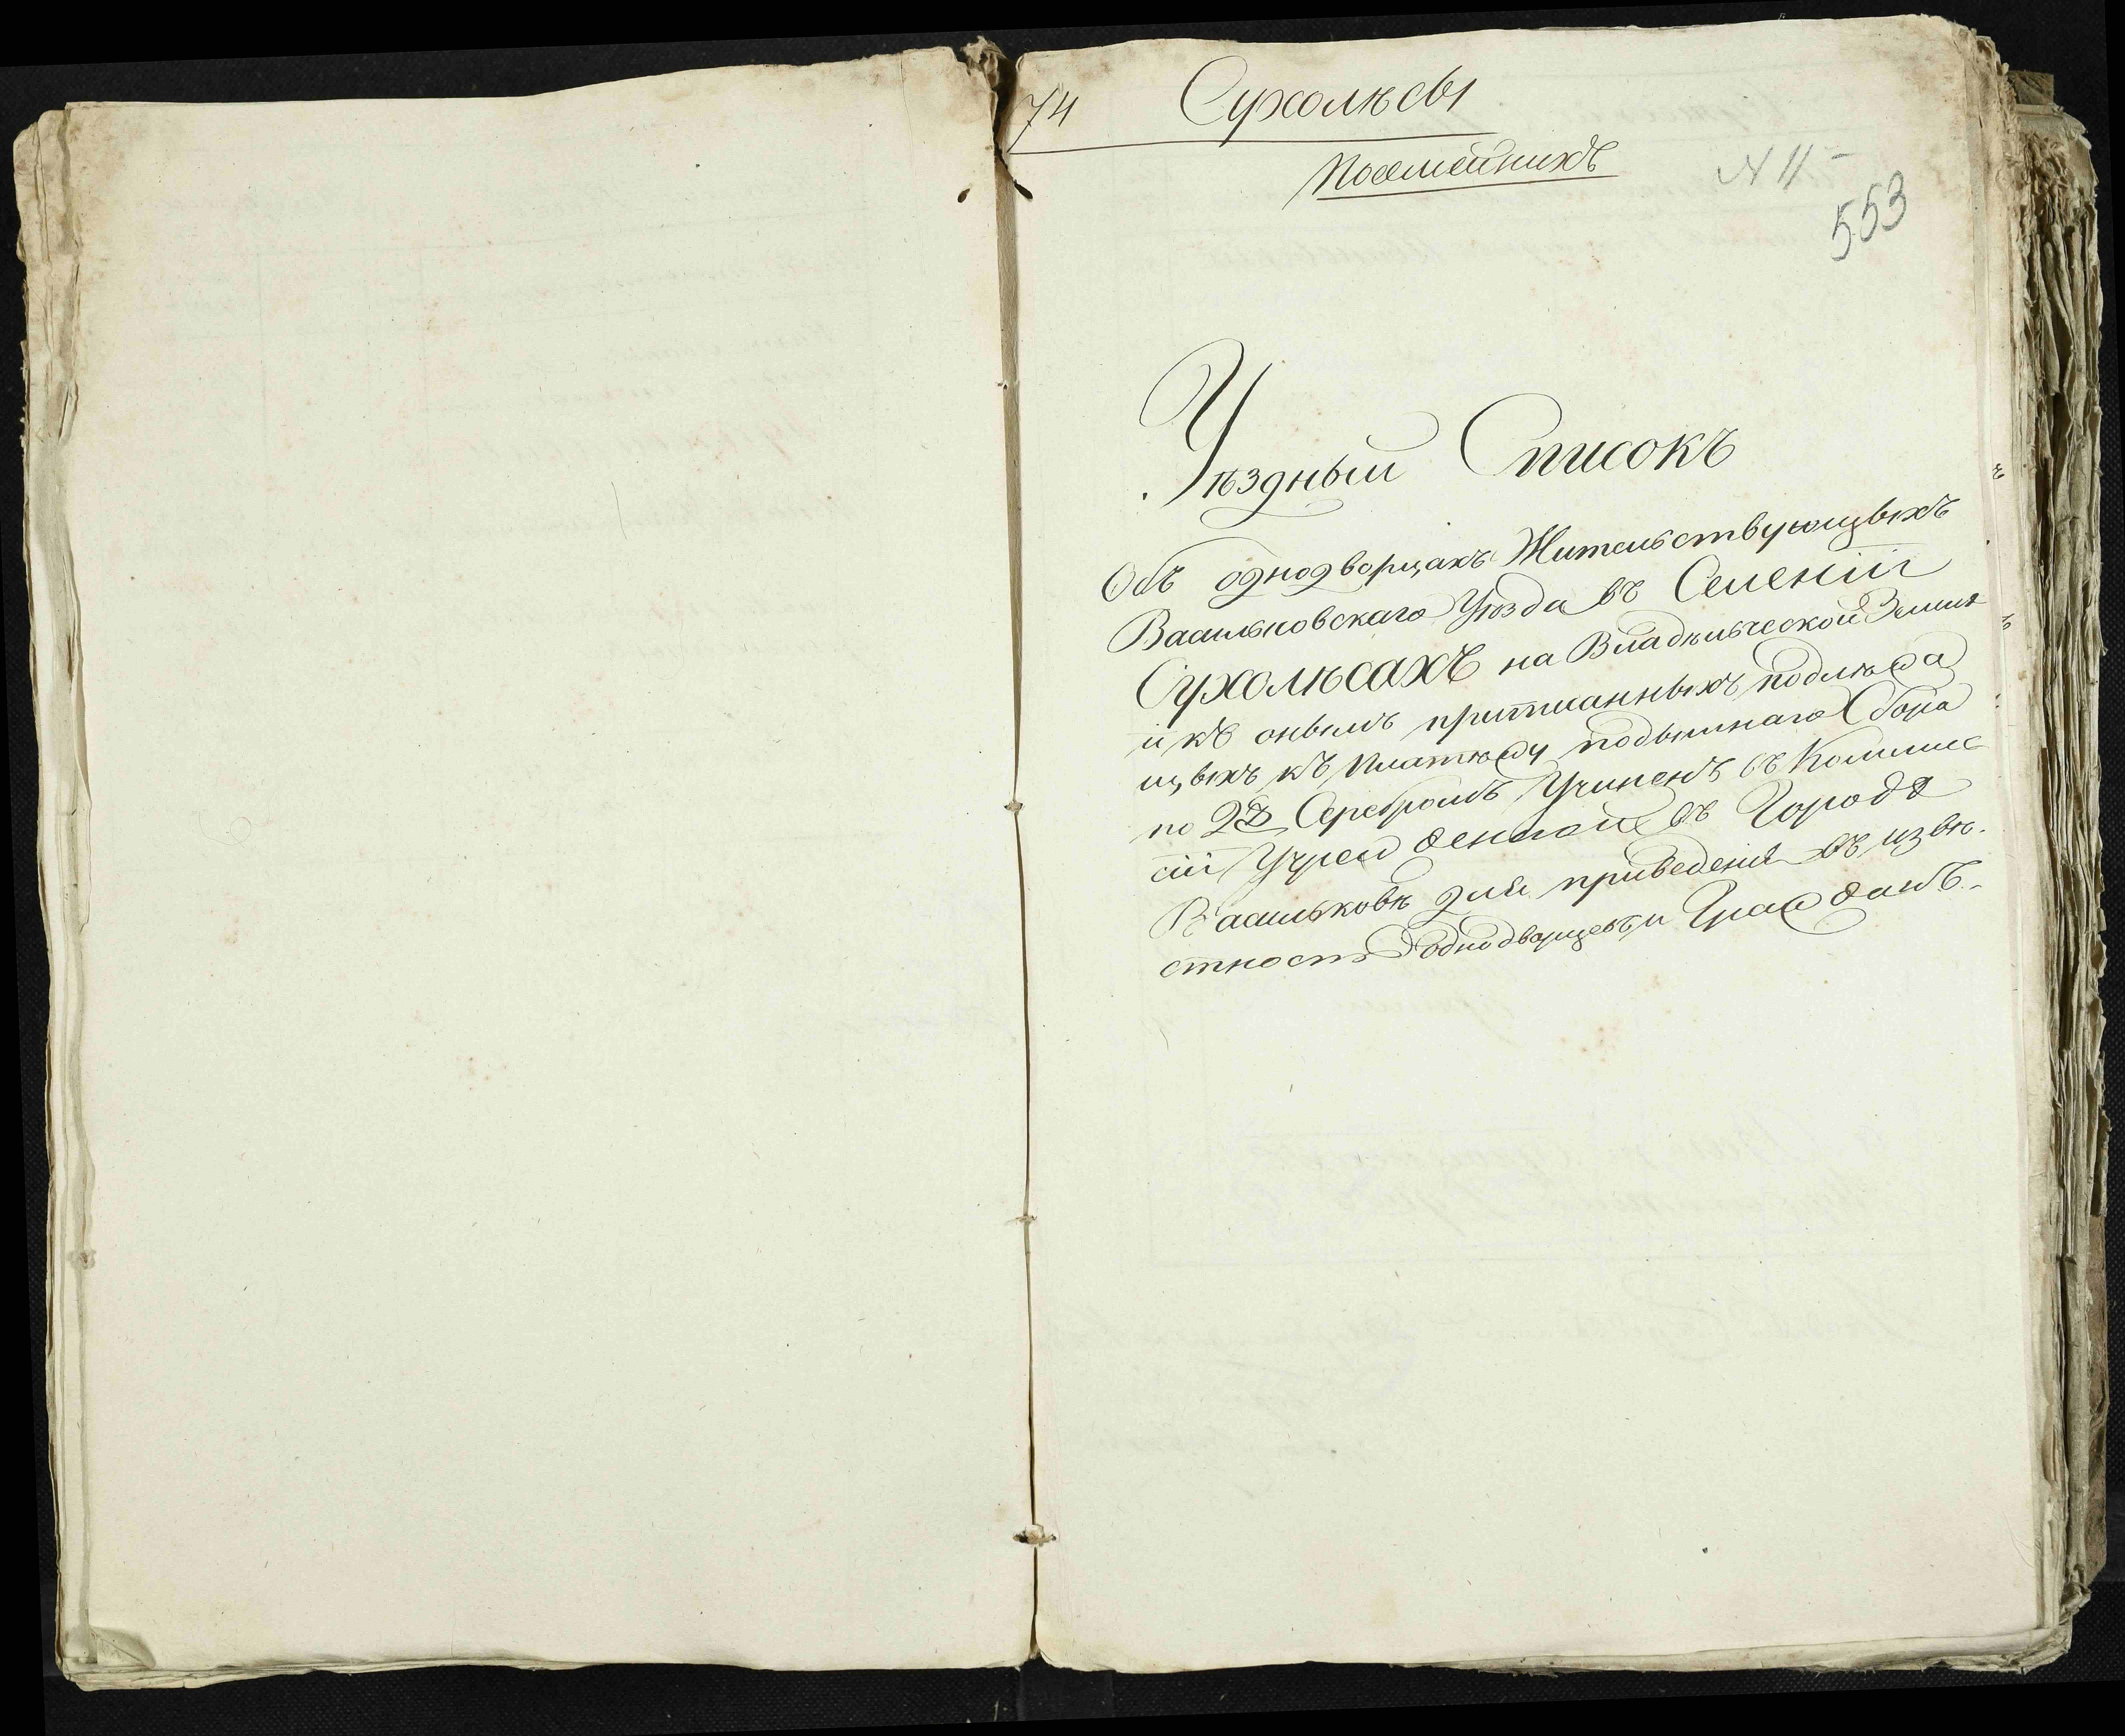 74 Сухолѣсы
Посемейникъ
N 11
553
Уѣздный Списокъ
Объ однодворцахъ Жительствующыхъ
Васильковскаго Уѣзда въ Селеніи
Сухолѣсахъ на Владѣльческой Землѣ
и къ онымъ приписанныхъ подлѣжа
щыхъ къ Платѣжу подымнаго Сбора
по 2 Серебромъ Учиненъ въ Коммис
сіи Учрежденной въ Городѣ
Васильковѣ для приведенія въ извѣ-
стность однодворцевъ и Гражданъ.